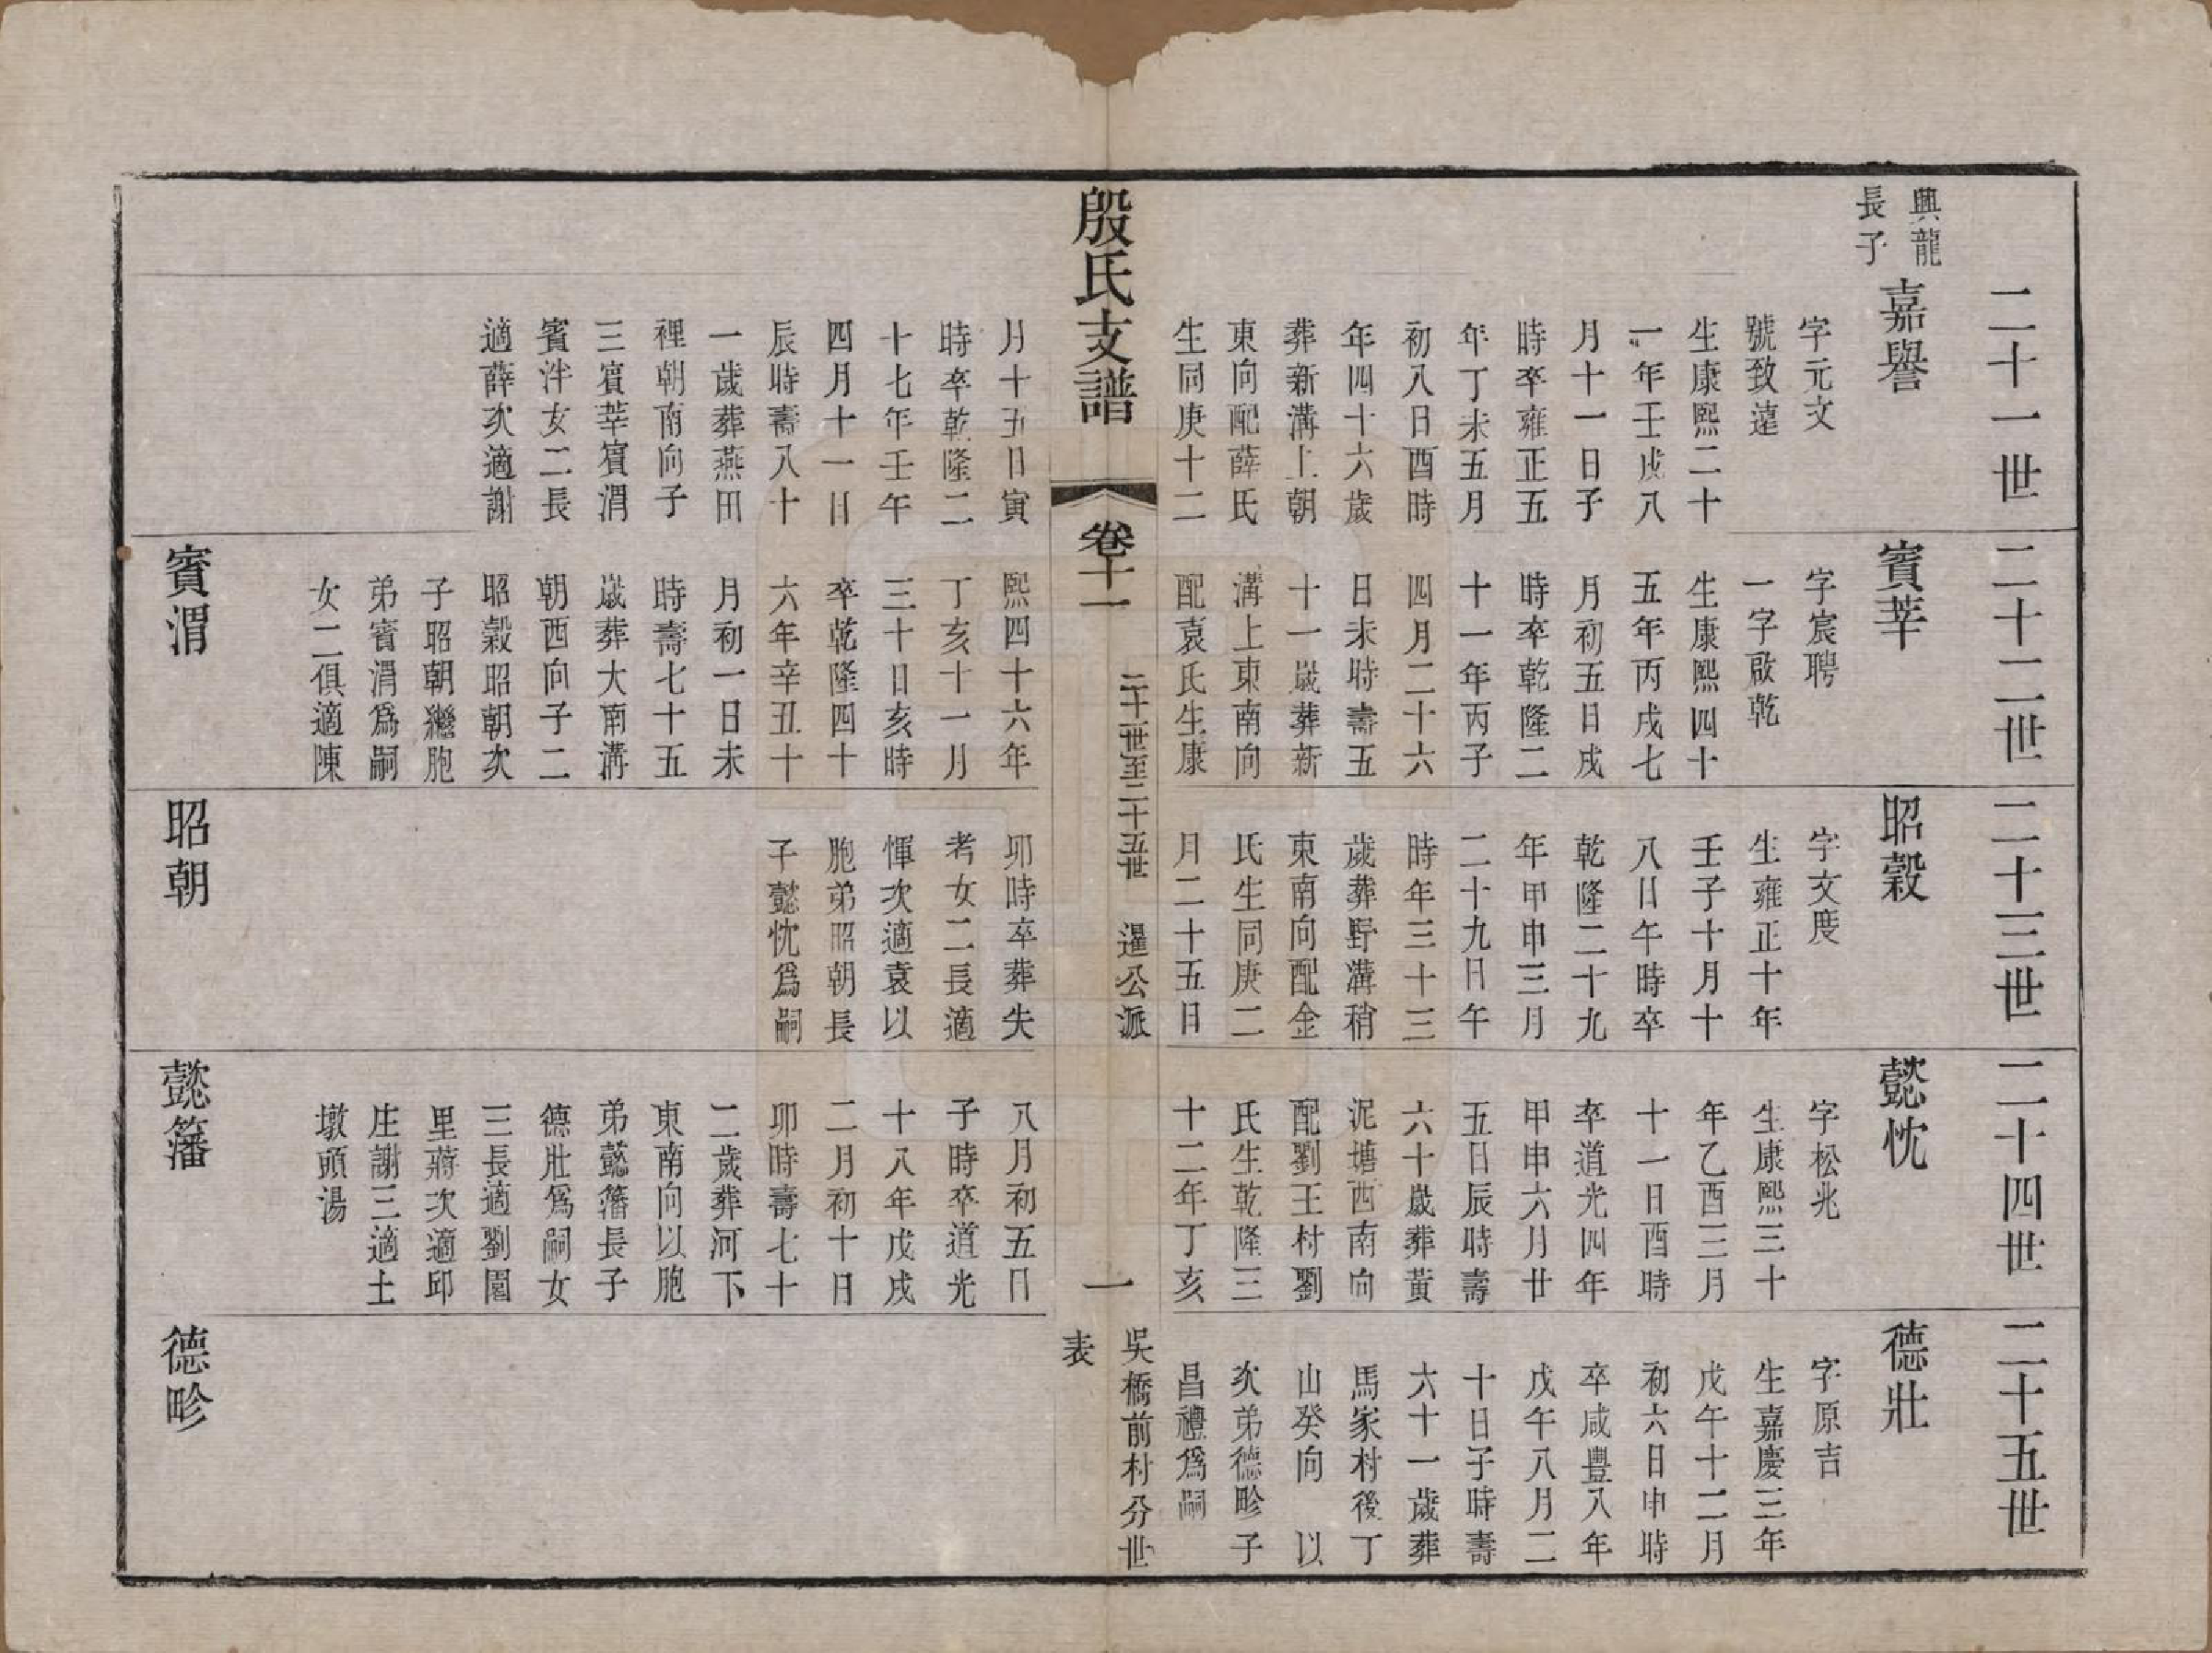 二十一世
興龍
長子
嘉譽
字元文
號致遠
生康熙二十
一年壬戌八
月十一日子
時卒雍正五
年丁未五月
初八日酉時
年四十六歲
葬新溝上朝
東向配薛氏
生同庚十二
月十五日寅
時卒乾隆二
十七年壬午
四月十一日
辰時壽八十
一歲葬燕田
裡朝南向子
三賓莘賓渭
賓泮女二長
適薛次適謝
二十二世
賓莘
字宸聘
一字啟乾
生康熙四十
五年丙戌七
月初五日戌
時卒乾隆二
十一年丙子
四月二十六
日未時壽五
十一歲葬新
溝上東南向
配袁氏生康
熙四十六年
丁亥十一月
三十日亥時
卒乾隆四十
六年辛丑十
月初一日未
時壽七十五
歲葬大南溝
朝西向子二
昭穀昭朝次
子昭朝繼胞
弟賓渭爲嗣
女二俱適陳
賓渭
二十三世
昭穀
字文度
生雍正十年
壬子十月十
八日午時卒
乾隆二十九
年甲申三月
二十九日午
時年三十三
歲葬野溝稍
東南向配金
氏生同庚二
月二十五日
卯時卒葬失
考女二長適
惲次適袁以
胞弟昭朝長
子懿忱爲嗣
昭朝
二十四世
懿忱
字松兆
生康熙三十
年乙酉三月
十一日酉時
卒道光四年
甲申六月廿
五日辰時壽
六十歲葬黃
泥塘西南向
配劉王村劉
氏生乾隆三
十二年丁亥
八月初五日
子時卒道光
十八年戊戌
二月初十日
卯時壽七十
二歲葬河下
東南向以胞
弟懿籓長子
德壯爲嗣女
三長適劉園
里蔣次適邱
庄謝三適土
墩頭湯
懿籓
二十五世
德壯
字原吉
生嘉慶三年
戊午十二月
初六日申時
卒咸豐八年
戊午八月二
十日子時壽
六十一歲葬
馬家村後丁
山癸向　以
次弟德畛子
昌禮爲嗣
德畛
殷氏支譜
卷十一
二十一世至二十五世　暹公派
一
吳橋前村分世
表